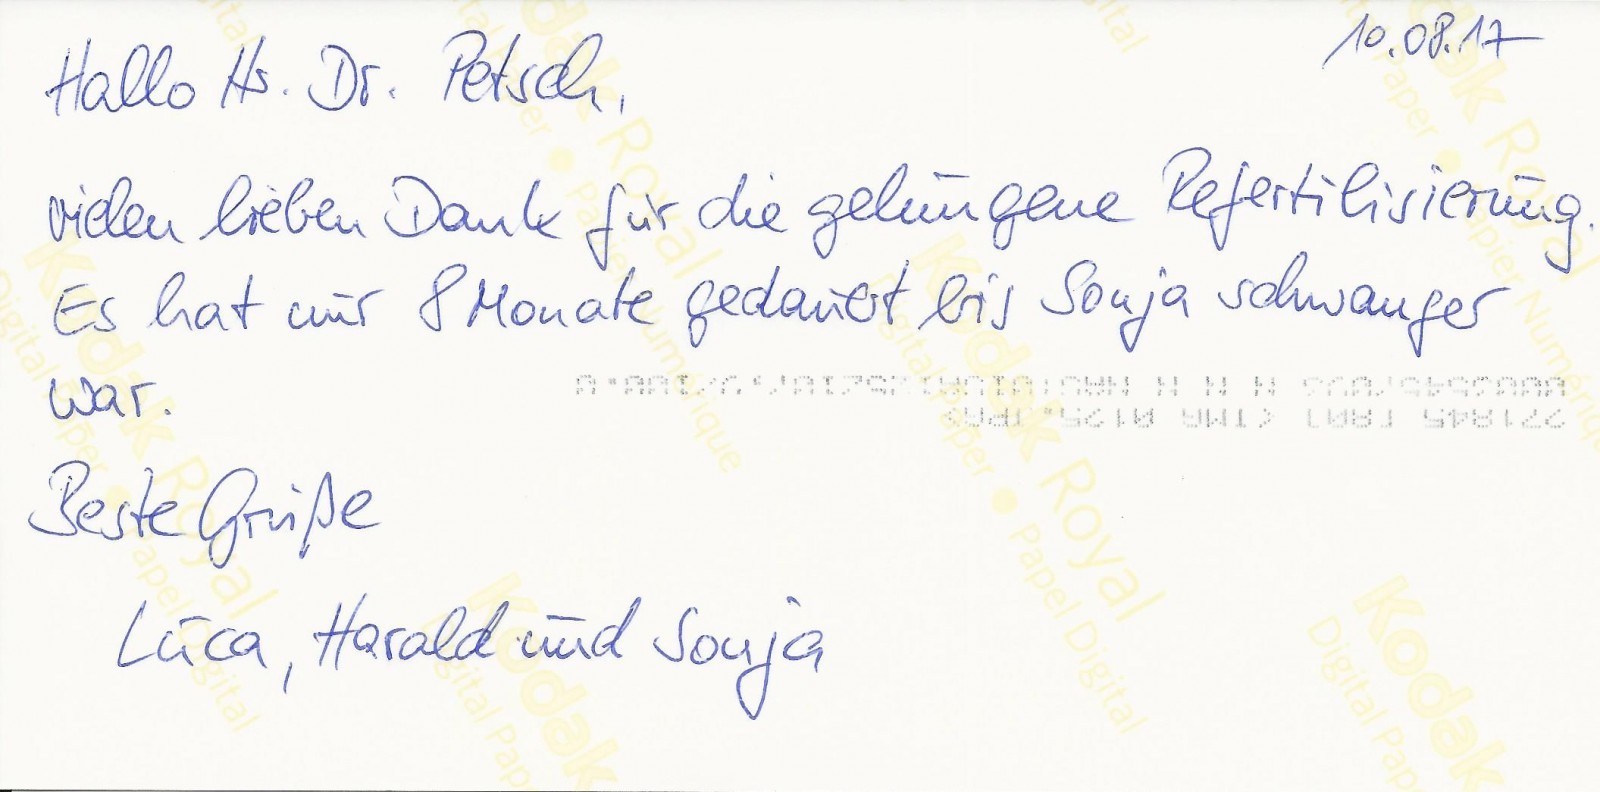 10.08.17
Hallo Hr. Dr. Petsch,
vielen lieben Dank für die gelungene Refertilisierung.
Es hat nur 8 Monate gedauert bis Sonja schwanger
war.
Beste Grüße
Luca, Harald und Sonja
Kodak Royal
Digital Paper • Papier Numérique
Papel Digital